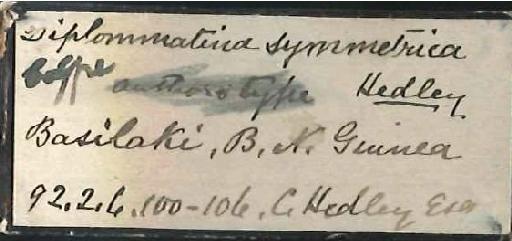 Diplommatina symmetrica
authors type Hedley
Basilaki, B. N. Guinea
92.2.6.100-106. C. Hedley Esq